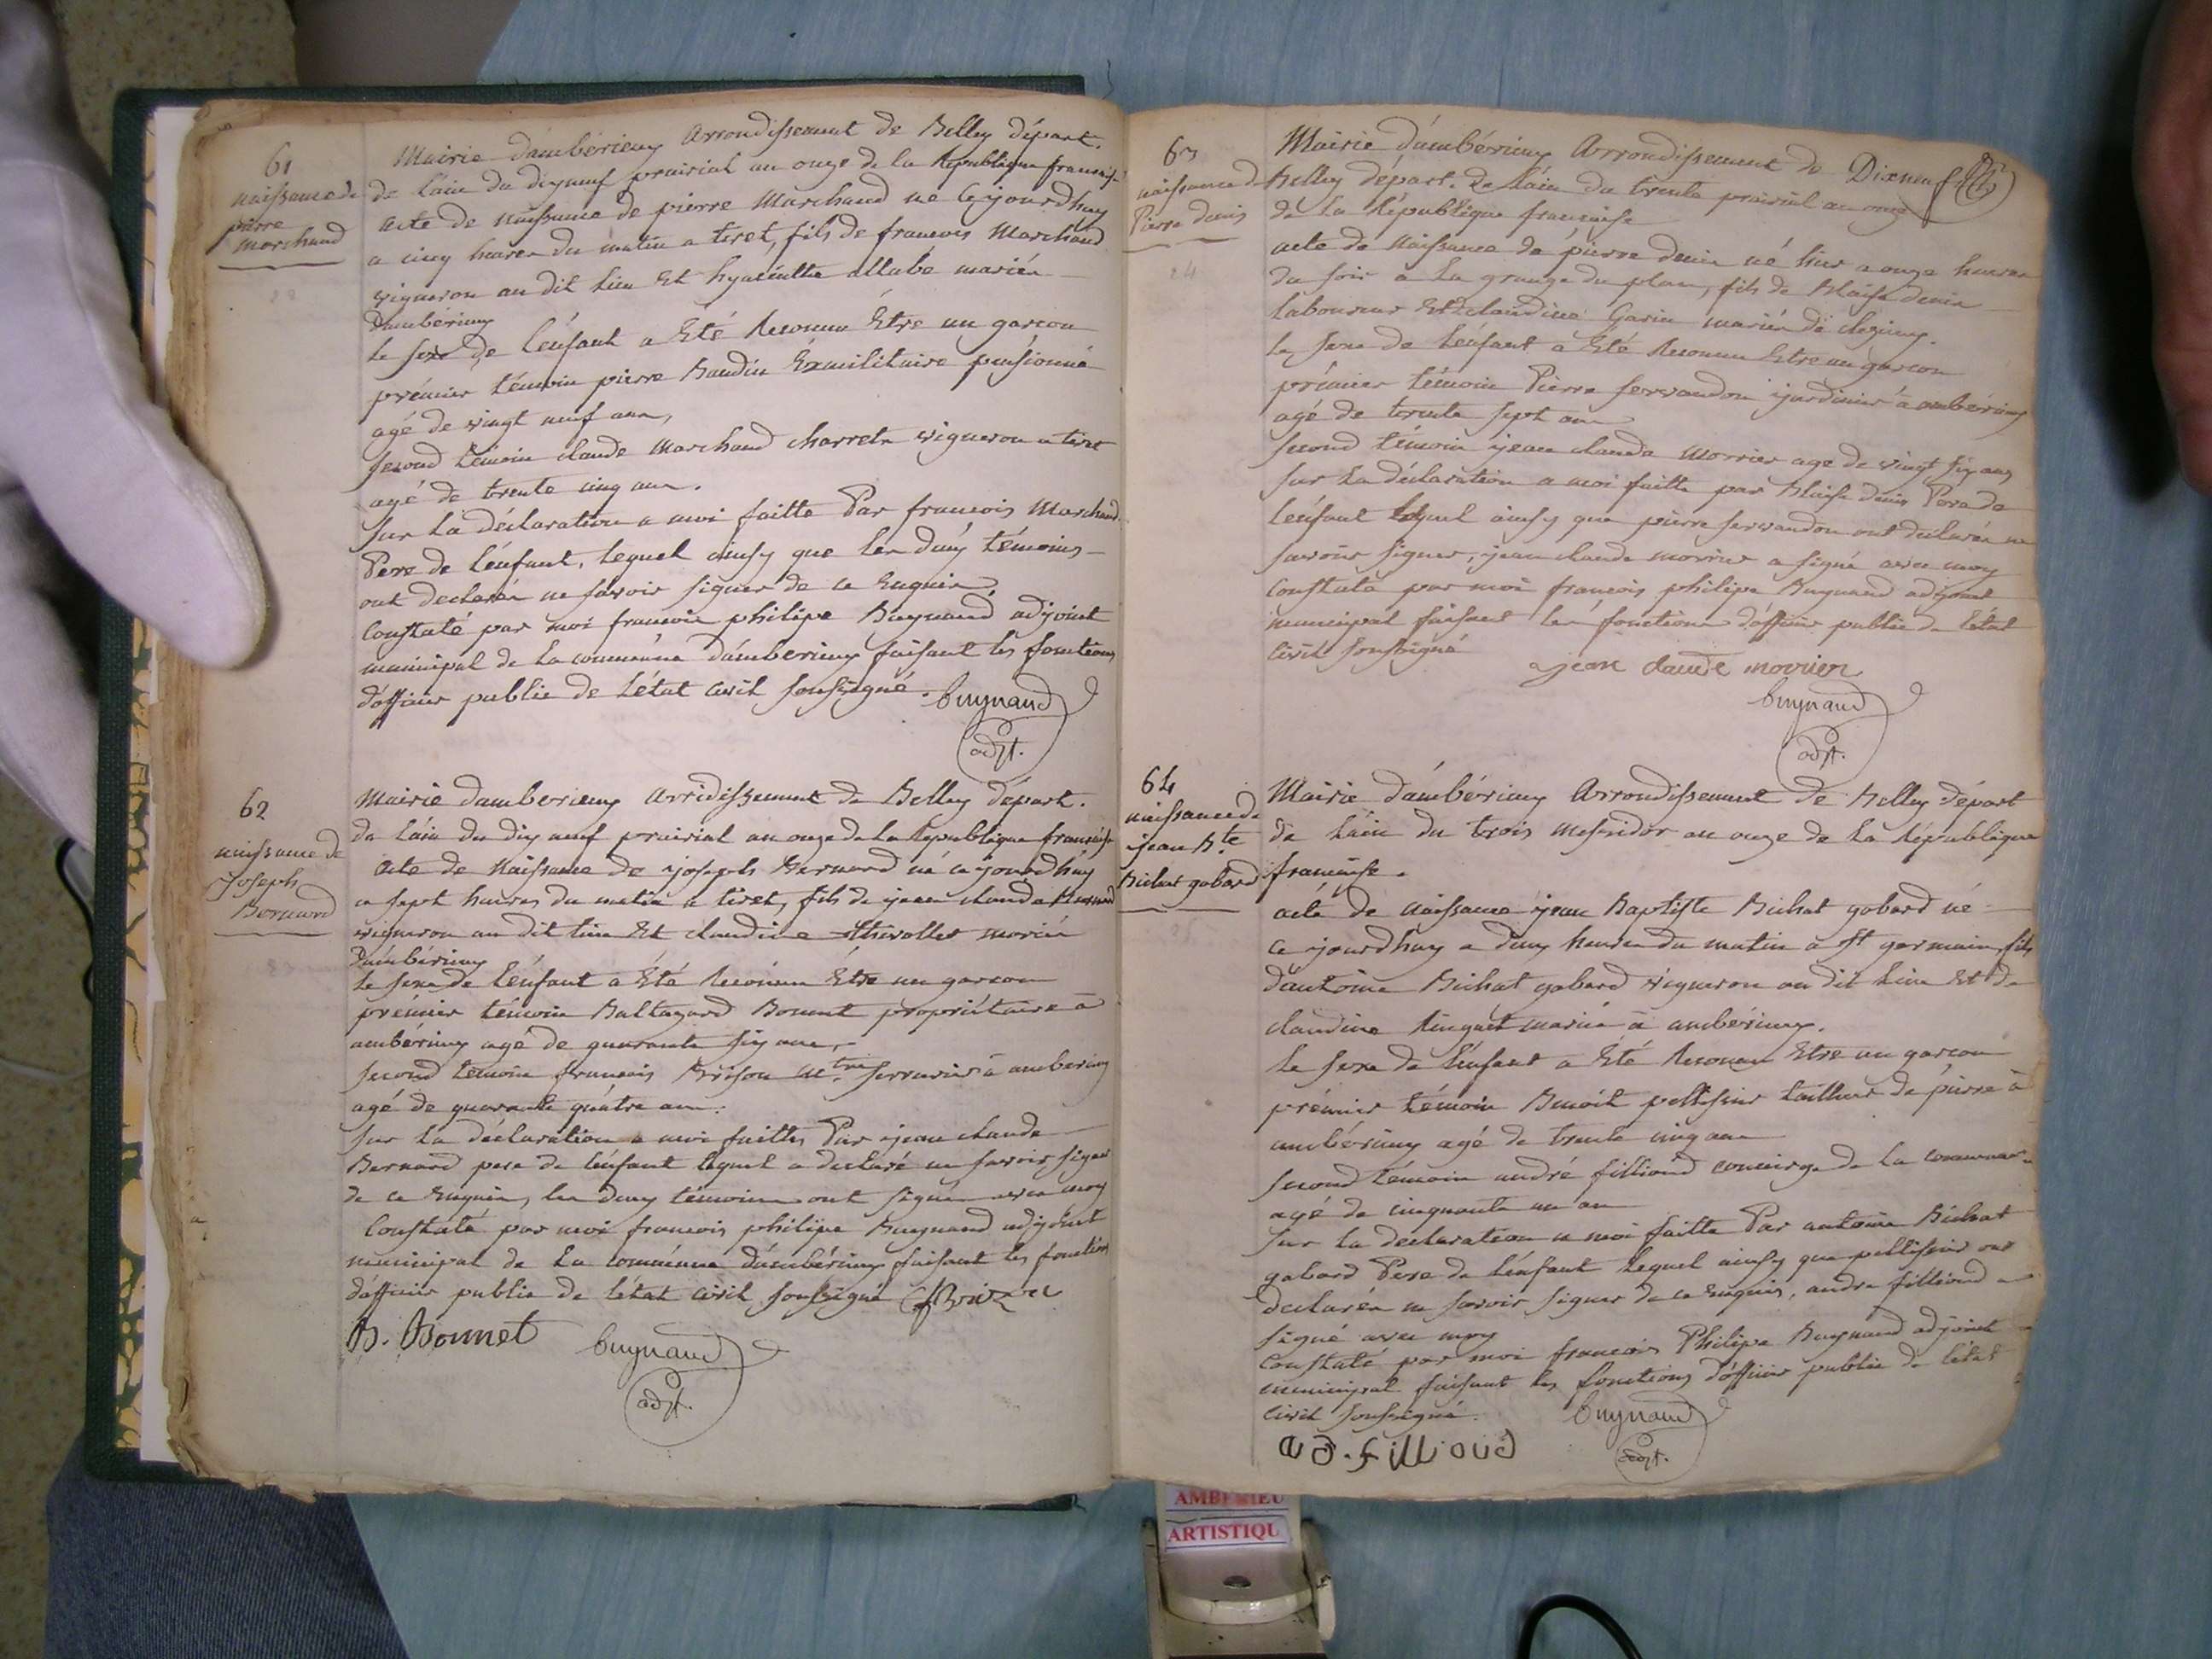 61
naissance de
pierre
marchand
Mairie d'ambérieux arrondissement de Belley départ.
de l'ain du dixneuf prairial an onze de la République française
acte de naissance de pierre Marchand né cejourdhuy
a cinq heures du matin a tiret, fils de francois Marchand
vigneron au dit lieu Et hyacinthe mariés
d'ambérieux
le sexe de l'énfant a Eté Reconnu Etre un garcon
prémier témoin pierre Baudin Exmilitaire pensionné
agé de vingt neuf ans,
second témoin claude Marchand charretr vigneron a tiret
agé de trente cinq ans.
sur la déclaration a moi faitte Par francois Marchand
Pere de l'énfant, lequel ainsy que les duy témoins
ont declarés ne savoir signer de ce Enquis
Constaté par moi francois philipe Buynand adjoint
municipal de la commune d'amberieux faisant les fonctions
d'officier public de l'état civil soussigné. buynand
adjt.
62
naissance de
joseph
Bernard
Mairie d'amberieux arridissement de Belley départ.
de l'ain du dix neuf prairial an onze de la République française
acte de naissance de joseph Bernard né cejourdhuy
a sept heures du matin a tiret, fils de jean claude Bernard
vigneron au dit lieu Et claudine thevollet mariés
d'ambérieux
le sexe de l'énfant a Eté Reconnu Etre un garcon
prémier témoin Baltazard Bonnet propriétaire à
ambérieux agé de quarante six ans,
second témoin francois Brison serrurier à amberieux
agé de quarante quatre ans.
sur la déclaration a moi faitte Par jean claude
Bernard pere de l'énfant lequel a declaré ne savoir signer
de ce Enquis, les duy témoins ont signés avec moy
Constaté par moi francois philipe Buynand adjoint
municipal de la commune d'ambérieux faisant les fonctions
d'officier public de l'état civil soussigné
B. Bonnet buynand
adjt.
63
naissance de
Pierre denis
Mairie d'ambérieux arrondissement de Dixneuf
Belley départ. de l'ain du trente prairial an onze
de la République française
acte de naissance de pierre denis né hier a onze heures
du soir a la grange du plan, fils de Blaise denis
laboureur Et claudine Garin mariés de
le sexe de l'énfant a Eté Reconnu Etre un garcon
prémier témoin Pierre servandon jardinier à ambérieux
agé de trente sept ans
second témoin jean claude morrier agé de vingt six ans
sur la déclaration a moi faitte par Blaise denis Pere de
l'énfant lequel ainsy que pierre servandon ont déclarés ne
savoir signer, jean claude morrier a signé avec moy
Constaté par moi francois philipe Buynand adjoint
municipal faisant les fonctions d'officier public de l'état
civil soussigné
jean claude morrier
buynand
adjt.
64
naissance de
jean Bte
Bichat gobard
Mairie d'ambérieux arrondissement de Belley départ
de l'ain du trois messidor an onze de la République
française.
acte de naissance jean Baptiste Bichat gobard né
ce jourdhuy a duy heures du matin a st germain, fils
d'antoine Bichat gobard vigneron au dit lieu Et de
claudine mariés à ambérieux.
le sexe de l'énfant a Eté Reconnu Etre un garcon
prémier témoin Benoit pellissier tailleur de pierre à
ambérieux agé de trente cinq ans
second témoin andré filliond concierge de la commune
agé de cinquante un an
sur la declaration a moi faitte Par antoine Bichat
gobard Pere de l'énfant lequel ainsy que pellissier ont
declarés ne savoir signer de ce Enquis, andré filliond a
signé avec moy
Constaté par moi francois Philipe Buynand adjoint
municipal faisant les fonctions d'officier public de l'état
civil soussigné. buynand
ad. fillioud adjt.
AMBERIEU
ARTISTIQU